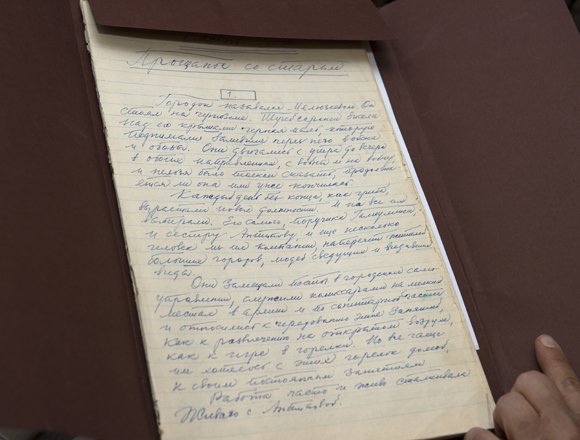 Прощанье со старым
1.
Городок назывался Мелюзеевым. Он
стоял на черноземе. Тучей саранчи висела
над его крышами черная пыль, которую
поднимали валившие через него войска
и обозы. Они двигались с утра до вечера
в обоих направлениях, с войны и на войну,
и нельзя было толком сказать, продолжа-
ется ли она или уже кончилась.
Каждый день без конца, как грибы,
вырастали новые должности. И на все их
выбирали. Его самого, поручика Галиуллина,
и сестру Антипову, и еще несколько
человек из их компании, наперечет жителей
больших городов, людей сведущих и видавших
виды.
Они замещали посты в городском само-
управлении, служили комиссарами на мелких
местах в армии и по санитарной части,
и относились к чередованию этих занятий,
как к развлечению на открытом воздухе,
как к игре в горелки. Но все чаще
им хотелось с этих горелок домой,
к своим постоянным занятиям
Работа часто и живо сталкивала
Живаго с Антиповой.